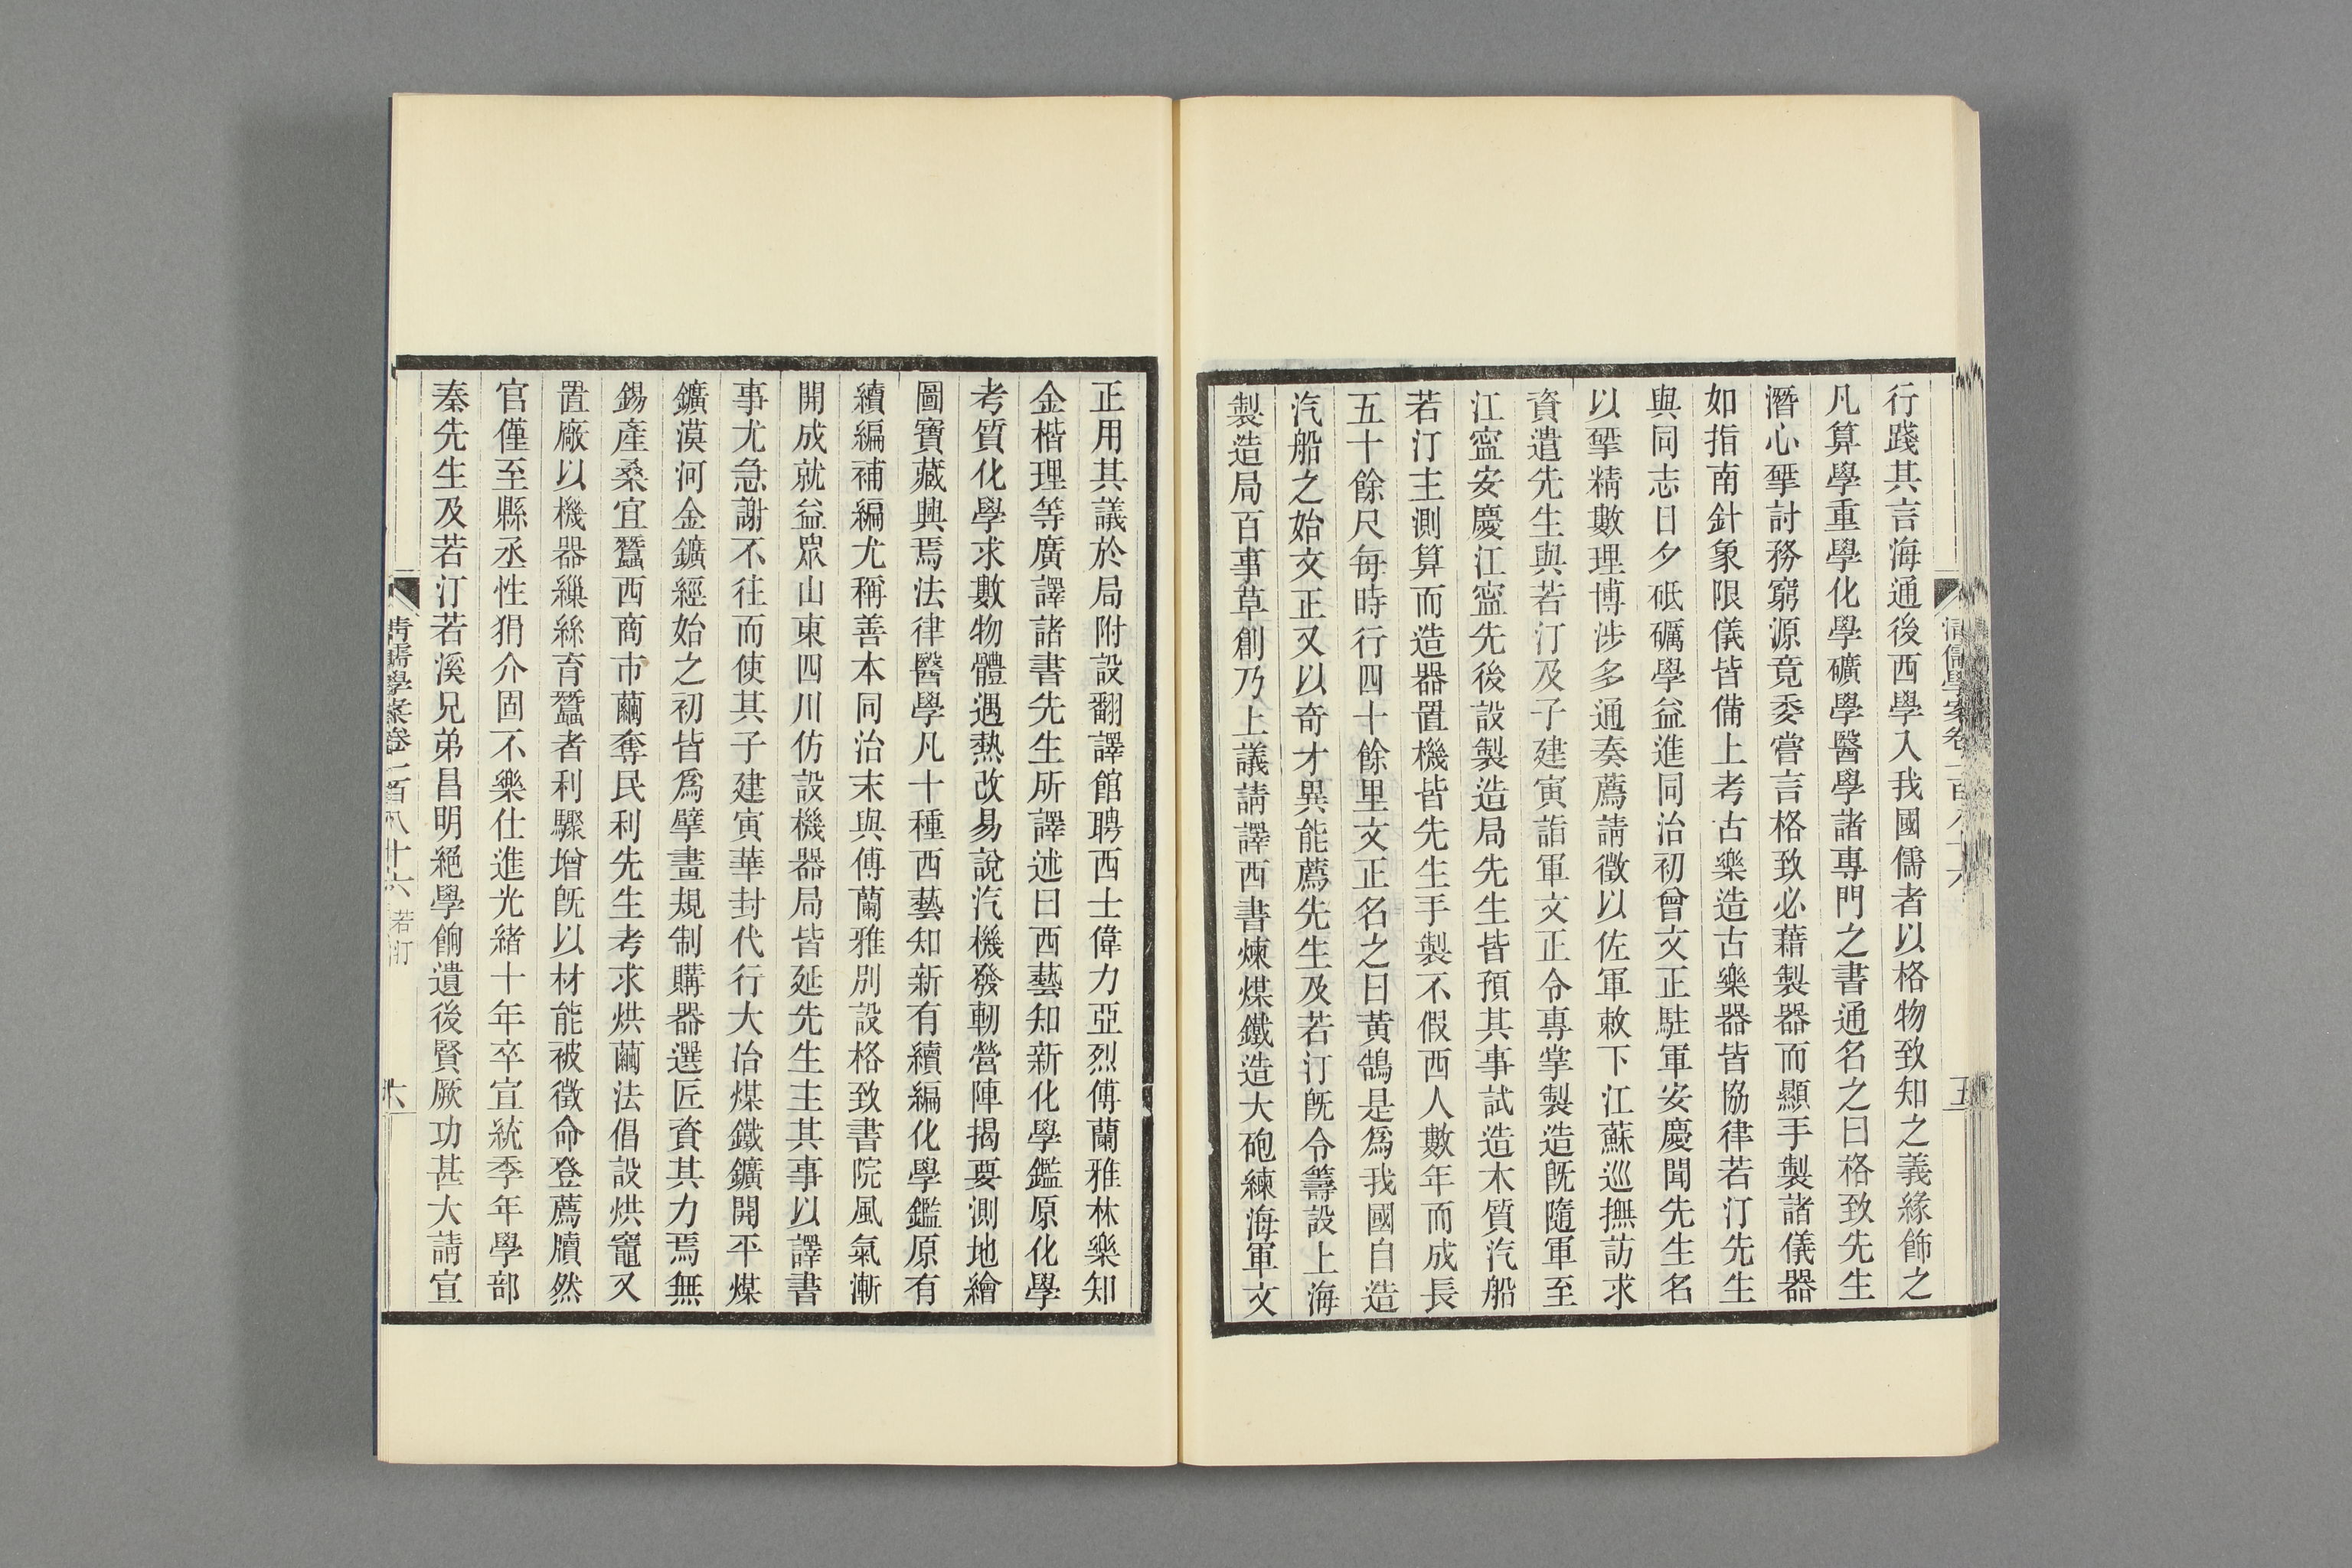 行踐其言海通後西學入我國儒者以格物致知之義緣飾之
凡算學重學化學礦學醫學諸專門之書通名之曰格致先生
潛心揅討務窮源竟委嘗言格致必藉製器而顯手製諸儀器
如指南針象限儀皆備上考古樂造古樂器皆協律若汀先生
與同志日夕砥礪學益進同治初曾文正駐軍安慶聞先生名
以揅精數理博涉多通奏薦請徵以佐軍敕下江蘇巡撫訪求
資遣先生與若汀及子建寅詣軍文正令專掌製造旣隨軍至
江寍安慶江寍先後設製造局先生皆預其事試造木質汽船
若汀主測算而造器置機皆先生手製不假西人數年而成長
五十餘尺每時行四十餘里文正名之曰黃鵠是爲我國自造
汽船之始文正又以奇才異能薦先生及若汀旣令籌設上海
製造局百事草創乃上議請譯西書煉煤鐵造大砲練海軍文
清儒學案卷一百八十六
五
正用其議於局附設翻譯館聘西士偉力亞烈傅蘭雅林樂知
金楷理等廣譯諸書先生所譯述曰西藝知新化學鑑原化學
考質化學求數物體遇熱改易說汽機發軔營陣揭要測地繪
圖寶藏興焉法律醫學凡十種西藝知新有續編化學鑑原有
續編補編尤稱善本同治末與傅蘭雅別設格致書院風氣漸
開成就益眾山東四川仿設機器局皆延先生主其事以譯書
事尤急謝不往而使其子建寅華封代行大冶煤鐵鑛開平煤
鑛漠河金鑛經始之初皆爲擘畫規制購器選匠資其力焉無
錫產桑宜蠶西商市繭奪民利先生考求烘繭法倡設烘竈又
置廠以機器繅絲育蠶者利驟增旣以材能被徵命登薦牘然
官僅至縣丞性狷介固不樂仕進光緒十年卒宣統季年學部
秦先生及若汀若溪兄弟昌明絕學餉遺後賢厥功甚大請宣
清儒學案卷一百八十六 若汀
六